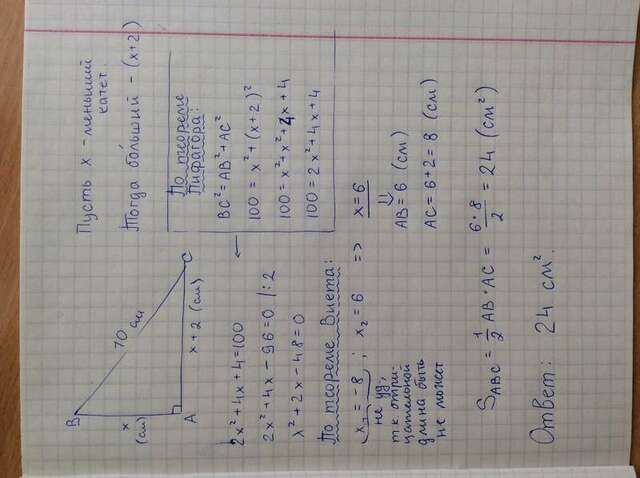 Пусть x - меньший
катет.
Тогда бóльший - (x+2)
B
x
(см)
10 см
A
x + 2 (см)
C
По теореме
Пифагора:
BC² = AB² + AC²
100 = x² + (x+2)²
100 = x² + x² + 4x + 4
100 = 2x² + 4x + 4
2x² + 4x + 4 = 100
2x² + 4x - 96 = 0 |:2
x² + 2x - 48 = 0
По теореме Виета:
x₁ = -8 ; x₂ = 6 => x = 6
не уд,
т.к. отри-
цательной
длина быть
не может
AB = 6 (см)
AC = 6+2 = 8 (см)
S_ABC = 1/2 AB · AC = 6·8/2 = 24 (см²)
Ответ: 24 см².